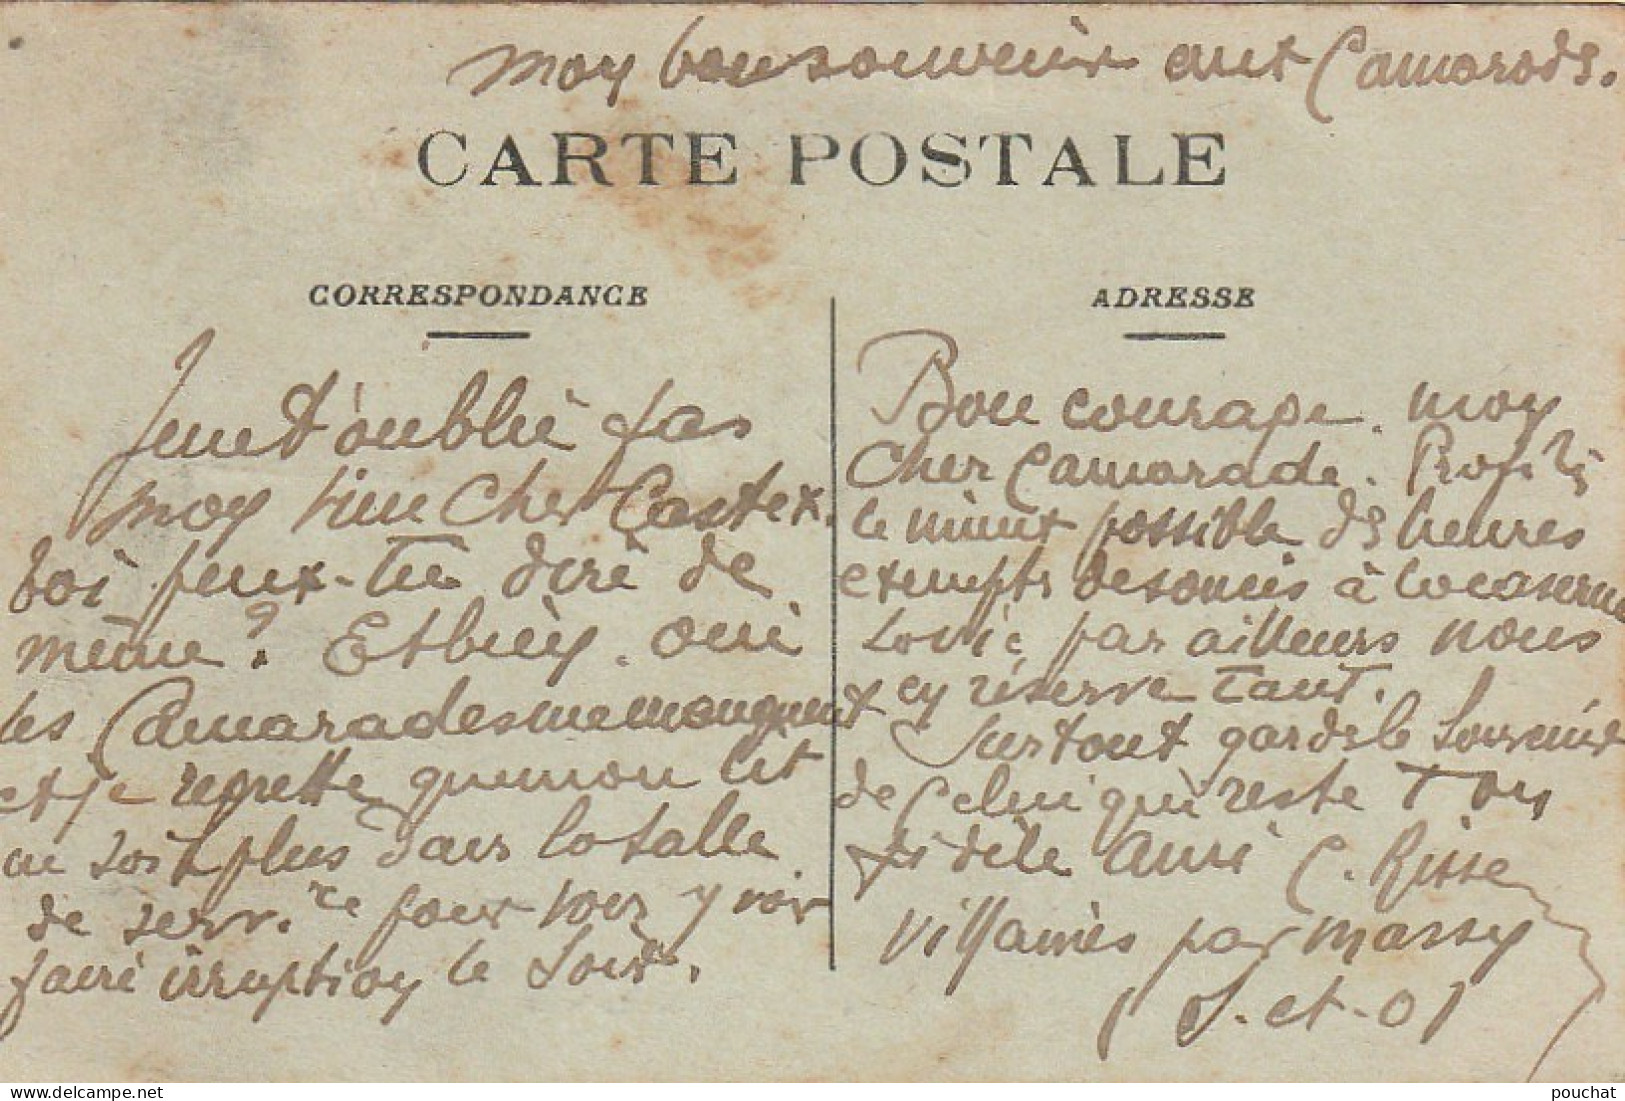 moy bon souvenir aux Camarades.
CARTE POSTALE
CORRESPONDANCE
Je ne t'oublie pas
moy vieux Cher Castex.
toi peux-tu dire de
même? Et bien, oui
les Camarades me manquent
et je regrette que mon lit
ne soit plus dans la salle
de serv.ce pour vous y voir
faire irruption le soir.
ADRESSE
Bon courage, moy
Cher Camarade. Profite
le mieux possible des heures
exemptes de soucis à la caserne
la vie, par ailleurs nous
en réserve tant.
Surtout garde le Souvenir
de Celui qui reste Ton
fidèle ami C. Risse
Villamiès par Massy
(S. et-O)
pouchat